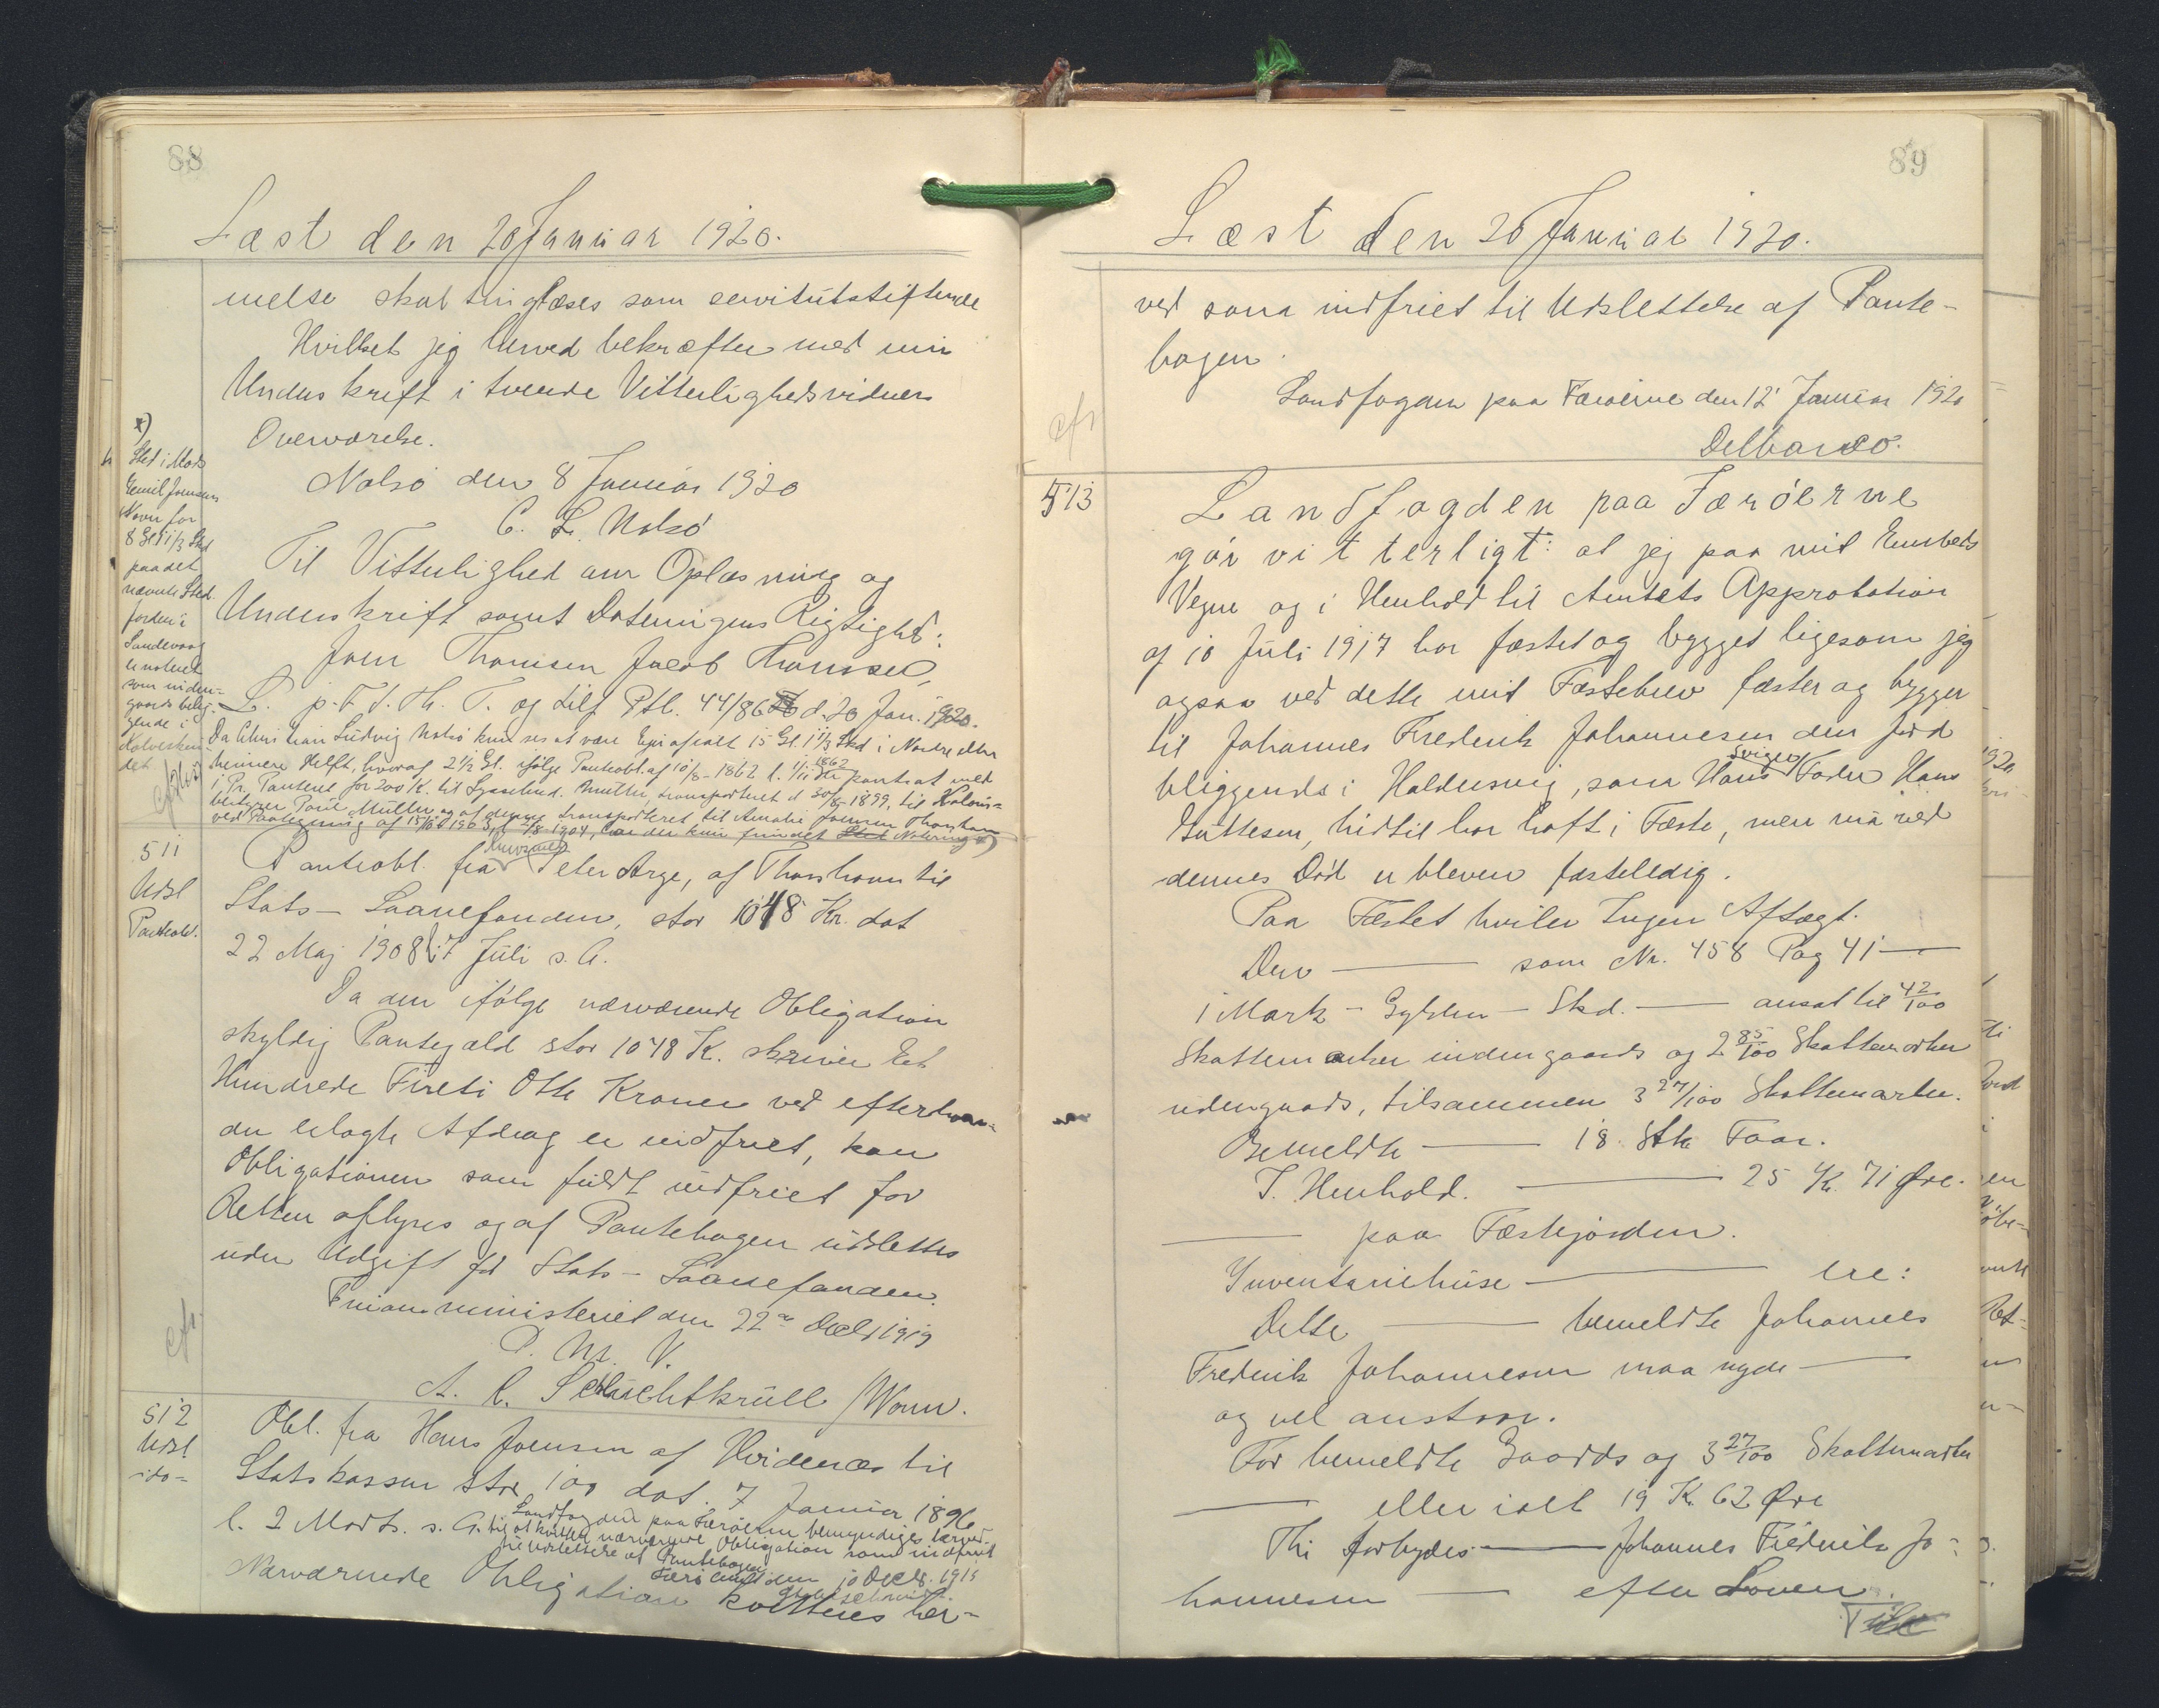 88
Læst den 20 Januar 1920.
melse skal tinglæses som servitutstiftende
Hvilket jeg herved bekræfter med min
Underskrift i tvende Vitterlighedsvidners
Overværelse.
Nolsø den 8 Januar 1920
C. L. Nolsø
Til Vitterlighed om Oplæsning og
Underskrift samt Dateringens Rigtighed:
Joen Thomsen Jacob Thomsen,
L. p. F. S. Th. T. og tilf Ptl. 44/86 d. 20 Jan. 1920.
Da Christian Ludvig Nolsø kun ses at være Ejer af ialt 15 Gl. 1 1/3 Skd i Nordre eller
hennere Helft, hvoraf 2 1/2 Gl. ifølge Panteobl. af 10/8 - 1862 l. 1/11 1862 er pantsat med
1 Pr. Panteret for 200 K. til Sysselmd. Müller, transporteret d 30/8 1899, til Koloni=
bestyrer Poul Müller og af denne transporteret til Amalie Joensen Thorshavn
x)
Sted i Mads
Emil Joensens
Navn for
8 Gl 1 1/3 Skd
paa det
nævnte Sted.
Jorden i
Sandevaag
er noteret
som inden=
gaards belig=
gende i
cfr
511
Udsl
Panteobl.
Panteobl. fra Peter Arge, af Thorshavn til
Stats- Laanefonden, stor 1048 Kr. dat
22 Maj 1908 l. 7 Juli s. A.
Da den ifølge nærværende Obligation
skyldig Pantegæld stor 1048 K. skriver Et
Hundrede Fireti Otte Kroner ved efterhaan=
den erlagte Afdrag er indfriet, kan
Obligationen som fuldt indfriet for
Retten aflyses og af Pantebogen udslettes
uden Udgift for Stats- Laanefonden.
Finansministeriet den 22de Decbr 1919
P. M. V.
A. C. Schlichtkrull /Worm.
cfr.
512
Udsl
-do-
Obl. fra Hans Joensen af Hvidenæs til
Statskassen stor 100 dat. 7 Januar 1896
l. 2 Marts. s. A.
Landfogden paa Færøerne bemyndiges herved
til at kvittere nærværende Obligation som indfriet
til Udslettelse af Pantebogen
Færø Amt den 10 Decbr. 1919
Nærværende Obligation kvitteres her-
89
Læst den 20 Januar 1920.
ved som indfriet til Udslettelse af Pante-
bogen.
Landfogden paa Færøerne den 12 Januar 1920
Delbanco.
cfr
513
Landfogden paa Færøerne
gør vitterligt: at jeg paa mit Embeds
Vegne og i Henhold til Amtets Approbation
af 10 Juli 1917 har fæstet og bygget ligesom jeg
ogsaa ved dette mit Fæstebrev fæster og bygger
til Johannes Frederik Johannesen den Jord
beliggende i Haldersvig, som Hans Sviger Fader Hans
Guttesen, hidtil har haft i Fæste, men nu ved
dennes Død er bleven fæsteledig.
Paa Fæstet hviler Ingen Aftægt.
Den —— som Nr. 458 Pag 41 ——
1 Mark - Gylden - Skd. —— ansat til 42/100
Skattemarker indengaards og 2 85/100 Skattemarker
udengaards, tilsammen 3 27/100 Skattemarker.
Bemeldte —— 18 Stk Faar.
I. Henhold. —— 25 Kr. 71 Øre.
—— paa Fæstejorden.
Inventariehuse —— ere:
Dette —— bemeldte Johannes
Frederik Johannesen maa nyde ——
og vel anstaar.
For bemeldte Gaards og 3 27/100 Skattemarker
—— eller ialt 19 K. 62 Øre
Thi forbydes —— Johannes Frederik Jo=
hannesen —— efter Loven.